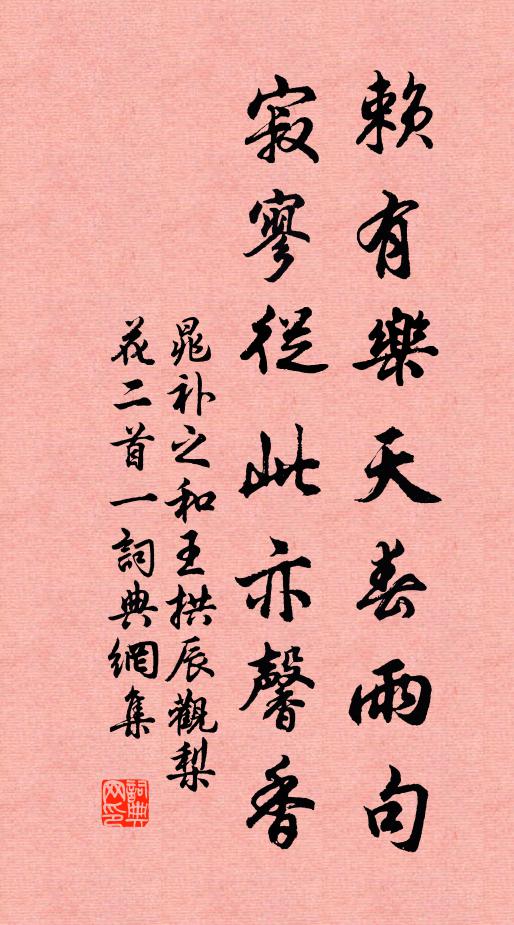 賴有樂天春雨句
寂寥從此亦馨香
晁补之和王拱辰觀梨
花二首一詞典網集
詞典
网印